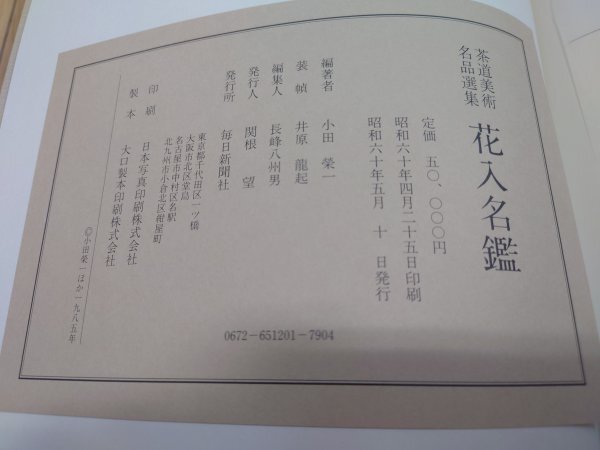 茶道美術
名品選集
花入名鑑
定価 五〇、〇〇〇円
昭和六十年四月二十五日印刷
昭和六十年五月 十 日発行
編著者 小田 榮一
装幀 井原 龍起
編集人 長峰八州男
発行人 関根 望
発行所 毎日新聞社
東京都千代田区一ツ橋
大阪市北区堂島
名古屋市中村区名駅
北九州市小倉北区紺屋町
印刷 日本写真印刷株式会社
製本 大口製本印刷株式会社
©小田榮一ほか一九八五年
0672-651201-7904